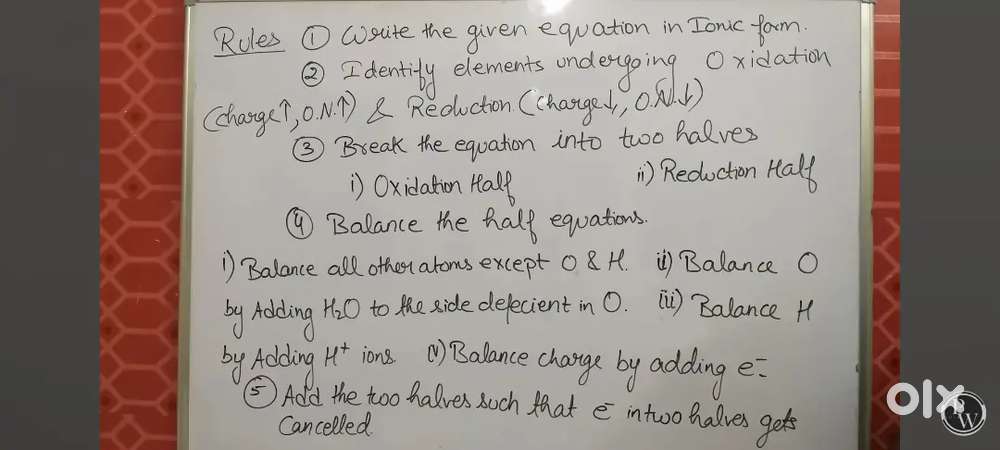 Rules ① Write the given equation in Ionic form.
② Identify elements undergoing Oxidation
(charge↑, O.N.↑) & Reduction (charge↓, O.N.↓)
③ Break the equation into two halves
i) Oxidation Half ii) Reduction Half
④ Balance the half equations.
i) Balance all other atoms except O & H. ii) Balance O
by Adding H₂O to the side defecient in O. iii) Balance H
by Adding H⁺ ions. iv) Balance charge by adding e⁻
⑤ Add the two halves such that e⁻ in two halves gets
Cancelled
olx